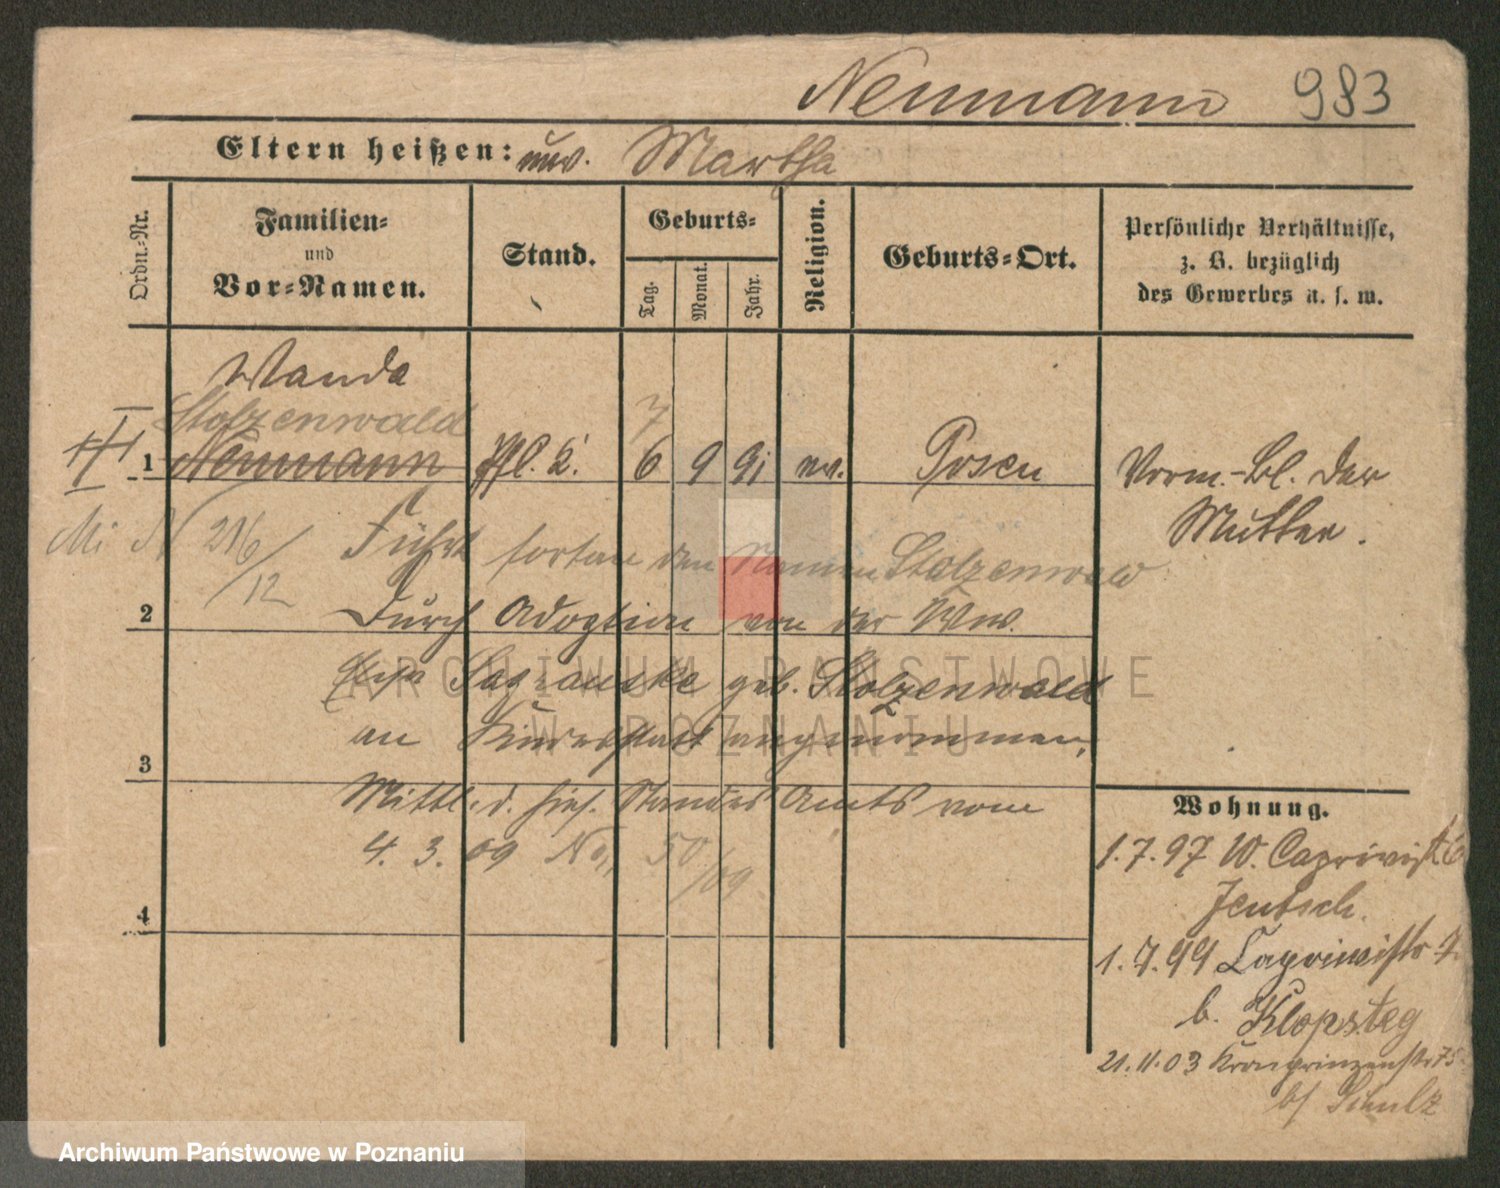 Neumann 983
Eltern heißen: unv. Martha
Ordn.-Nr.
Familien-
und
Vor-Namen.
Stand.
Geburts-
Tag.
Monat.
Jahr.
Religion.
Geburts-Ort.
Persönliche Verhältnisse,
z. B. bezüglich
des Gewerbes u. s. w.
Wanda
Stolzenwald
1 Neumann Pfl. K. 6 9 91 ev. Posen
7
Vorm.-Bl. der
Mutter.
216/12
Führt fortan den Namen Stolzenwald
2 durch Adoption von der Ww.
geb. Stolzenwald
3 an Kindesstatt angenommen,
Mittl. d. hies. Standes Amts vom
4. 3. 09 No. 50/09
4
Wohnung.
1.7.97 W. Caprivistr 6
Jentsch.
1.7.99 Caprivistr 7.
b. Klopsteg
21.11.03 Kronprinzenstr 75
b/ Schulz
ARCHIWUM PAŃSTWOWE
W POZNANIU
Archiwum Państwowe w Poznaniu